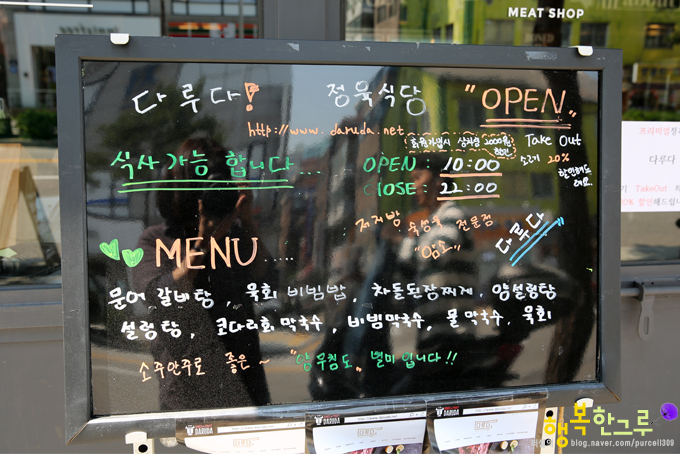 MEAT SHOP
다루다! 정육식당 "OPEN"
http://www.daruda.net
Take Out
20%
식사 가능 합니다...
OPEN : 10:00
CLOSE : 22:00
저지방 육성우 전문점
"암소"
다루다
MENU .....
문어 갈비탕, 육회 비빔밥, 차돌된장찌게, 양설렁탕
설렁탕, 코다리회 막국수, 비빔막국수, 물 막국수, 육회
소주안주로 좋은 ~ "양무침도" 별미 입니다!!
프리미엄
다루다
TakeOut
DARUDA
DARUDA
행복한그루
blog.naver.com/purcell309